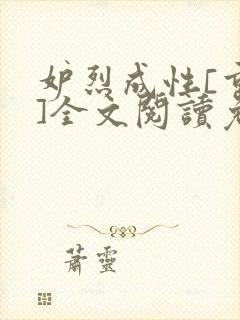 妒烈成性[重
]全文閱讀
蕭靈